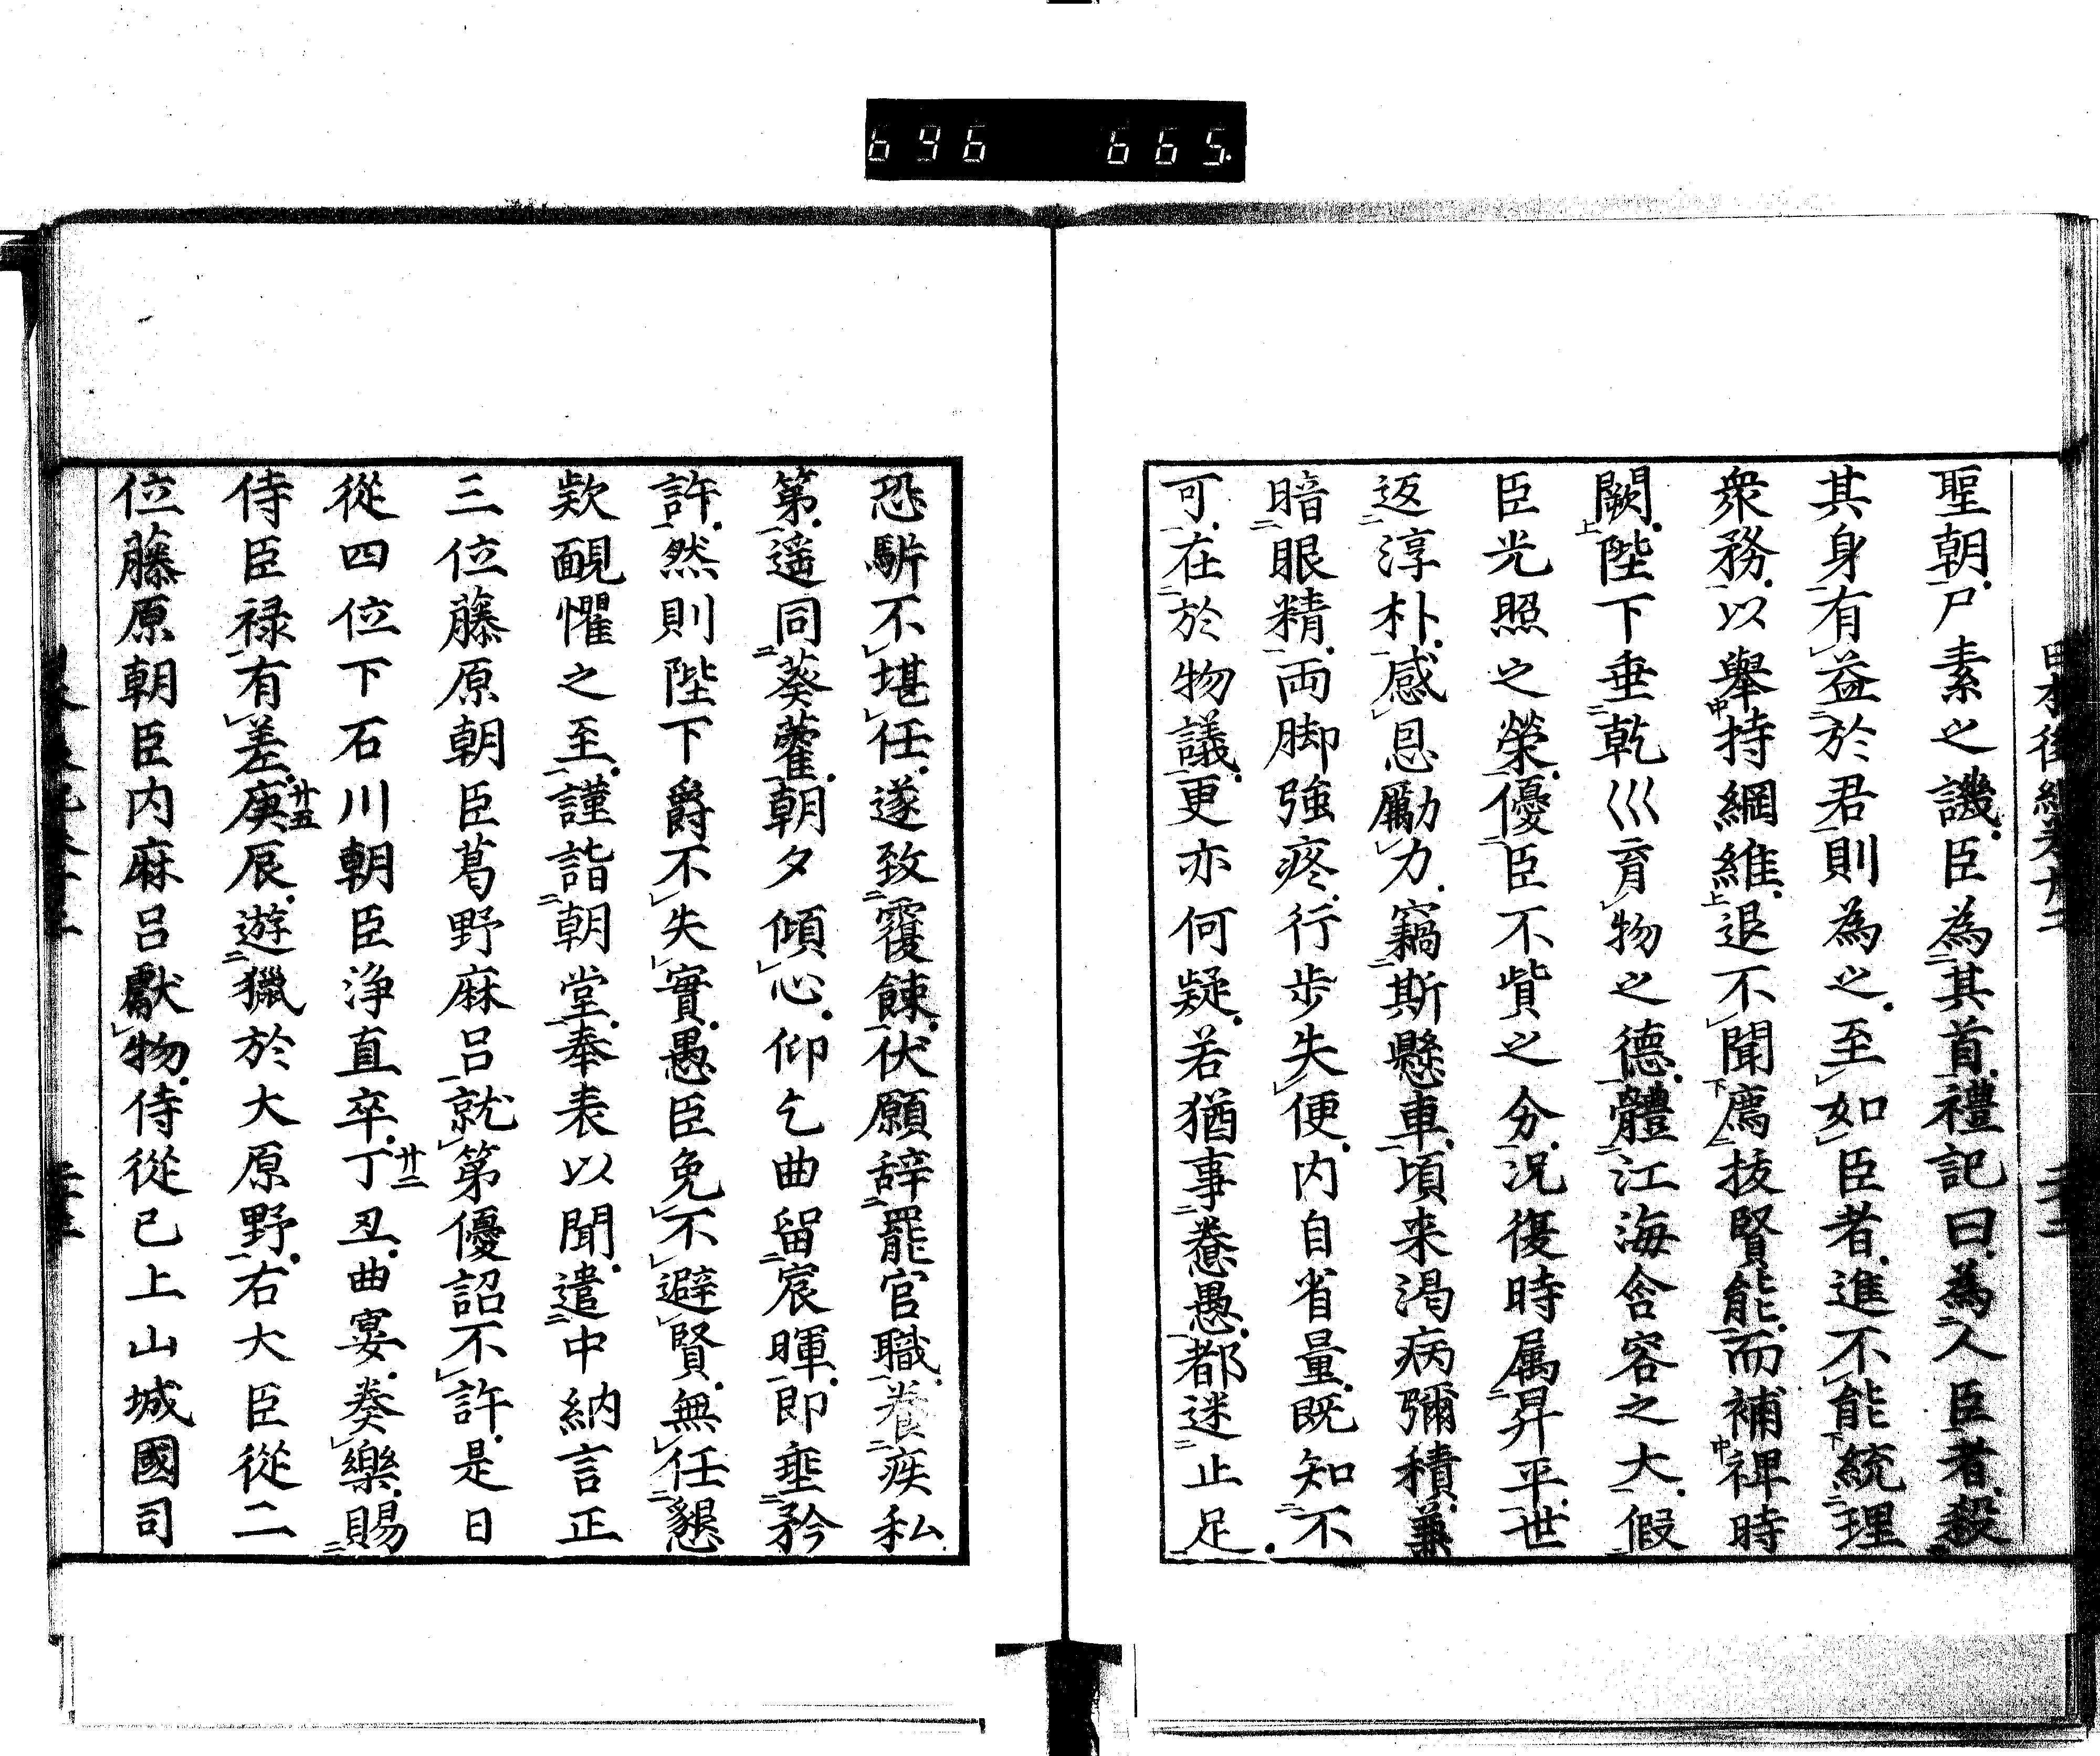 696 665
聖朝尸素之譏臣為其首禮記曰為人臣者殺
其身有益於君則為之至如臣者進不能統理
衆務以舉持綱維退不聞薦拔賢能而補裨時
闕陛下垂乾巛育物之德體江海含容之大假
臣光照之榮優臣不貲之分況復時属昇平世
返淳朴感恩勵力竊斯懸車頃来渇病彌積兼
暗眼精両脚強疼行步失便内自省量既知不
可在於物議更亦何疑若猶事惷愚都迷止足
恐駈不堪任遂致覆餗伏願辞罷官職養疾私
第遥同葵藿朝夕傾心仰乞曲留宸暉即垂矜
許然則陛下爵不失實愚臣免不避賢無任懇
欵靦懼之至謹詣朝堂奉表以聞遣中納言正
三位藤原朝臣葛野麻呂就第優詔不許是日
從四位下石川朝臣浄直卒丁丑廿二曲宴奏樂賜
侍臣禄有差庚辰廿五遊獵於大原野右大臣從二
位藤原朝臣内麻呂獻物侍從已上山城國司